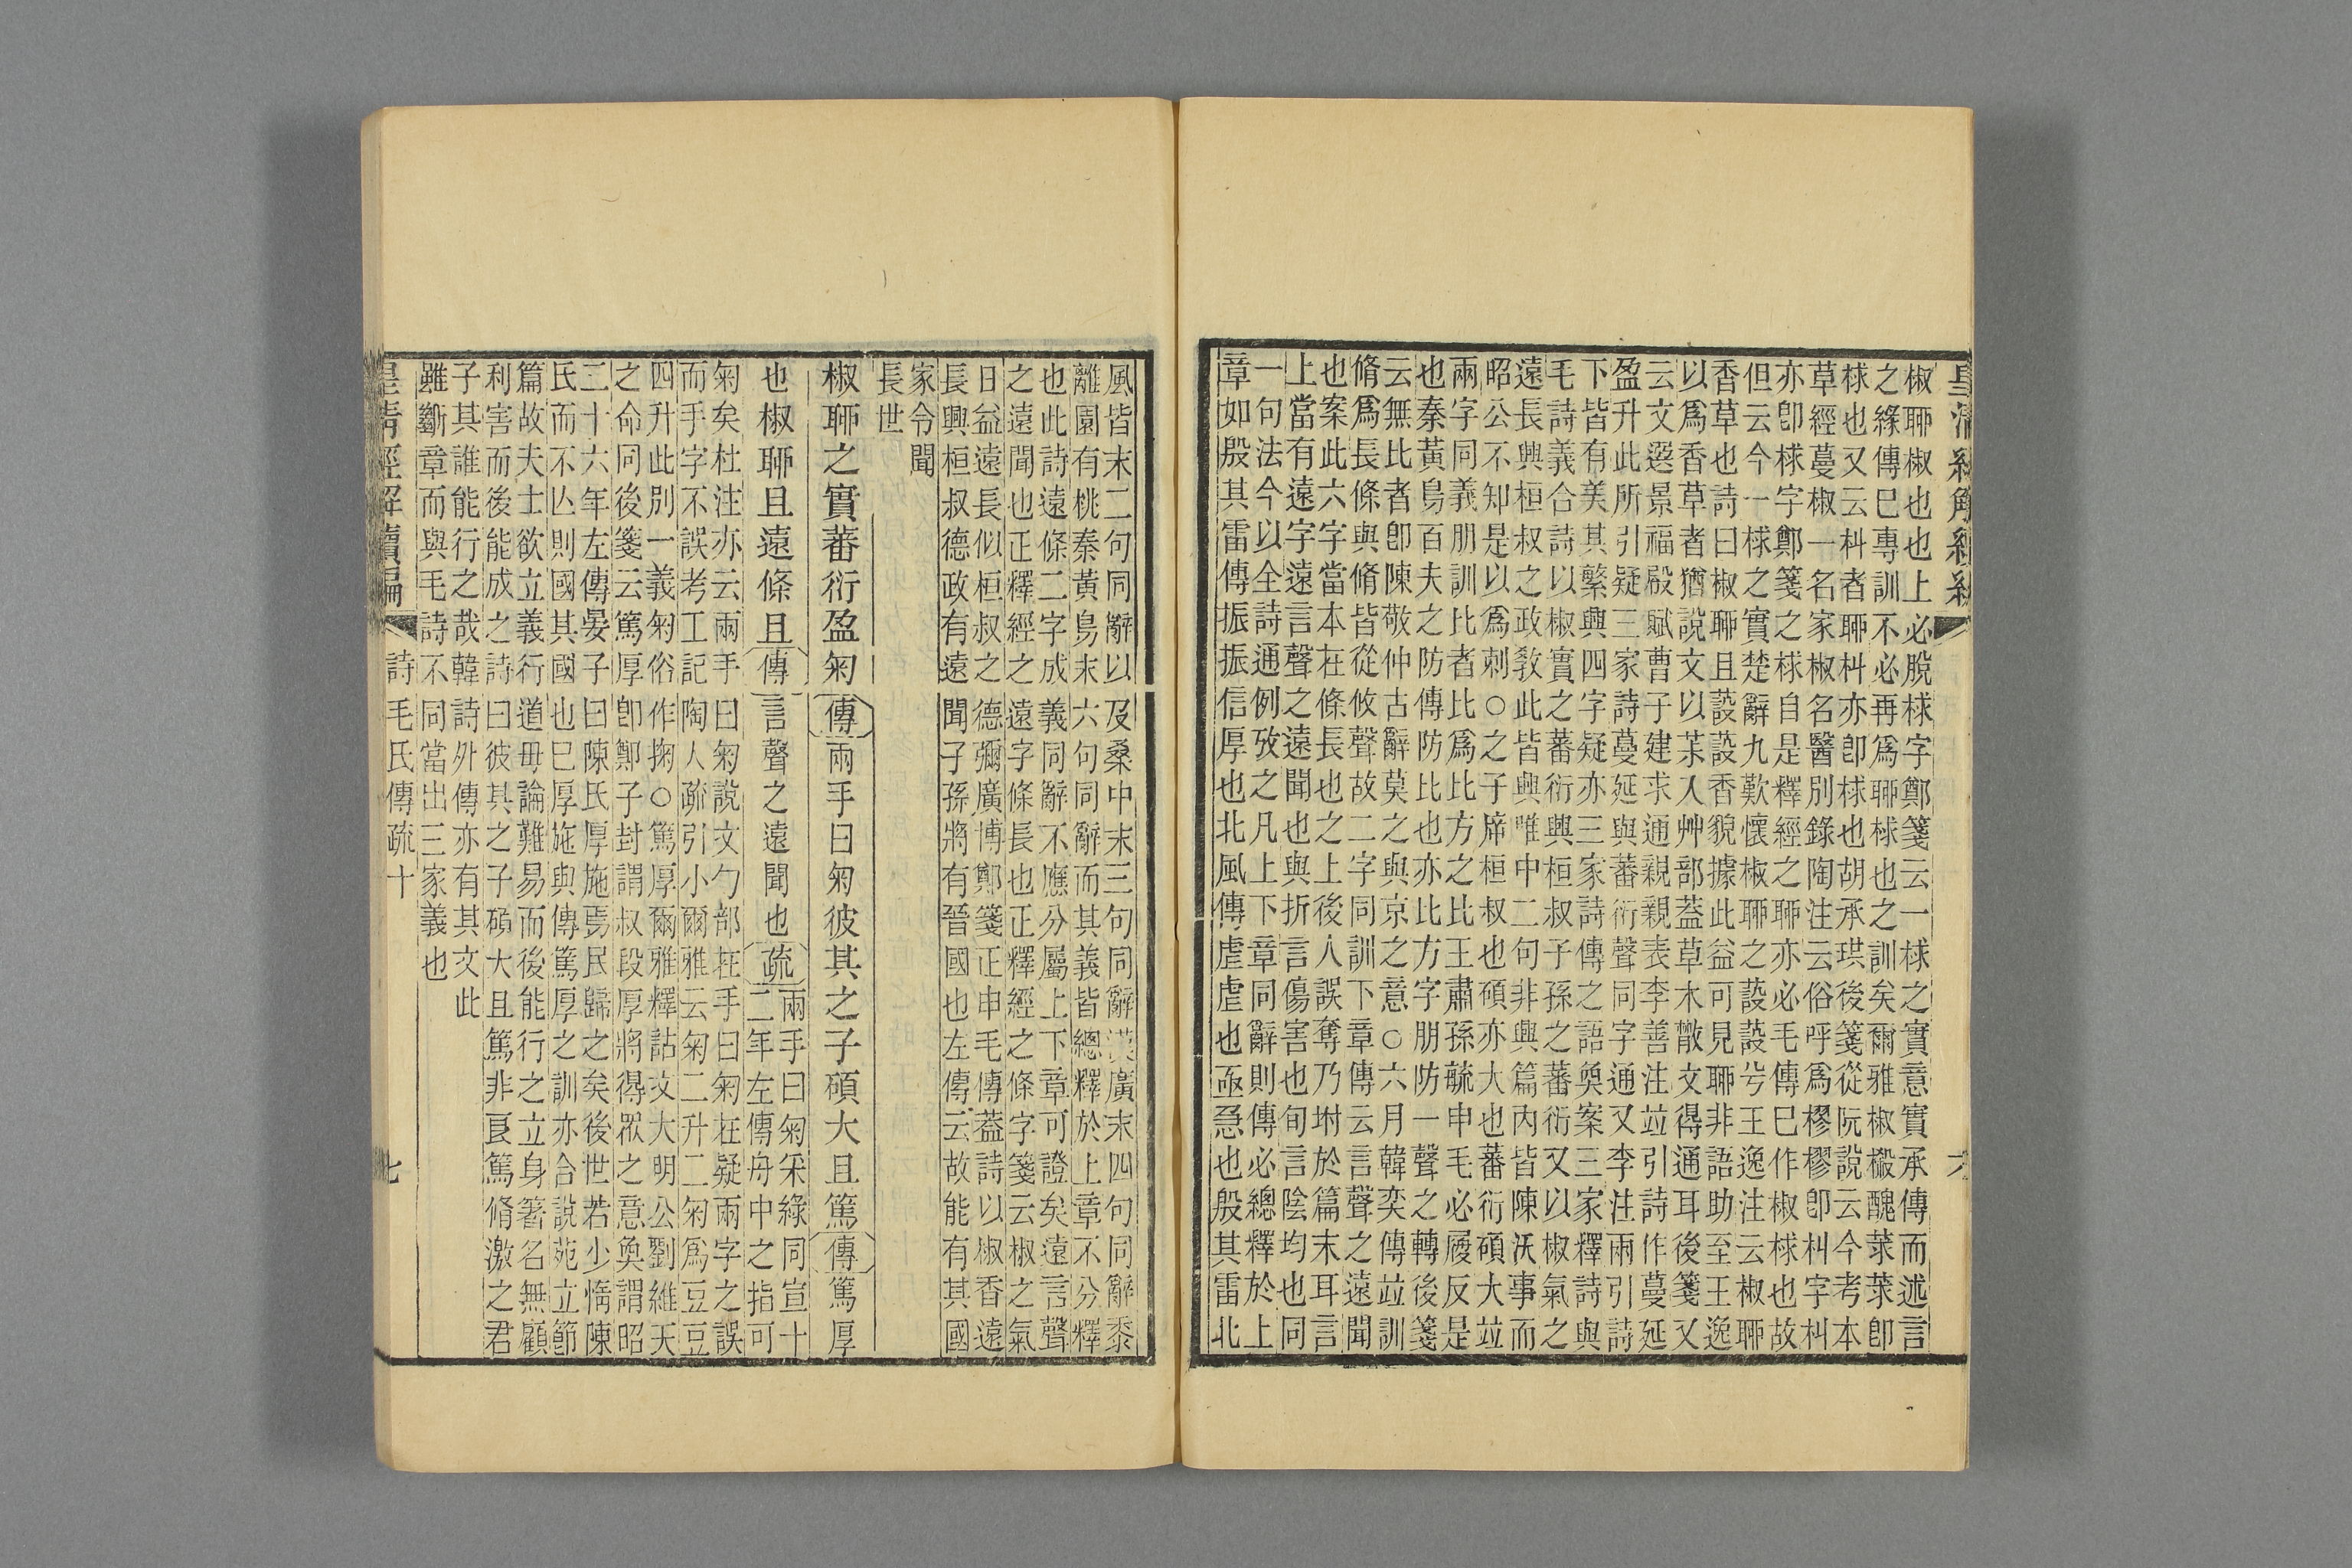 皇清經解續編
六
椒聊椒也也上必脫梂字鄭箋云一梂之實意實承傳而述言
之緣傳巳專訓不必再爲聊梂也之訓矣爾雅椒樧醜莍莍卽
梂也又云朻者聊朻亦卽梂也胡承珙後箋從阮說云今考本
草經蔓椒一名家椒名醫別錄陶注云俗呼爲樛樛卽朻字朻
亦卽梂字鄭箋之梂自是釋經之聊亦必毛傳巳作椒梂也故
但云今一梂之實楚辭九歎懷椒聊之蔎蔎兮王逸注云椒聊
香草也詩曰椒聊且蔎蔎香貌據此益可見聊非語助至王逸
以爲香草者猶說文以茮入艸部蓋草木散文得通耳後箋又
云文選景福殿賦曹子建求通親親表李善注竝引詩作蔓延
盈升此所引疑三家詩蔓延與蕃衍聲同字通又李注兩引詩
下皆有美其繁興四字疑亦三家詩傳之語奐案三家釋詩與
毛詩義合詩以椒實之蕃衍興桓叔子孫之蕃衍又以椒氣之
遠長興桓叔之政敎此皆興唯中二句非興篇內皆陳沃事而
昭公不知是以爲刺○之子席桓叔也碩亦大也蕃衍碩大竝
兩字同義朋訓比者比爲比方之比王肅孫毓申毛必履反是
也秦黃鳥百夫之防傳防比也亦比方字朋防一聲之轉後箋
云無比者卽陳敬仲古辭莫之與京之意○六月韓奕傳竝訓
脩爲長條與脩皆從攸聲故二字同訓下章傳云言聲之遠聞
也案此六字當本在條長也之上後人誤奪乃坿於篇末耳言
上當有遠字遠言聲之遠聞也與折言傷害也旬言陰均也同
一句法今以全詩通例攷之凡上下章同辭則傳必總釋於上
章如殷其雷傳振振信厚也北風傳虛虛也亟急也殷其雷北
風皆末二句同辭以及桑中末三句同辭漢廣末四句同辭黍
離園有桃秦黃鳥末六句同辭而其義皆總釋於上章不分釋
也此詩遠條二字成義同辭不應分屬上下章可證矣遠言聲
之遠聞也正釋經之遠字條長也正釋經之條字箋云椒之氣
日益遠長似桓叔之德彌廣博鄭箋正申毛傳蓋詩以椒香遠
長興桓叔德政有遠聞子孫將有晉國也左傳云故能有其國
家令聞
長世
椒聊之實蕃衍盈匊傳兩手曰匊彼其之子碩大且篤傳篤厚
也椒聊且遠條且傳言聲之遠聞也疏兩手曰匊采綠同宣十
二年左傳舟中之指可
匊矣杜注亦云兩手曰匊說文勹部在手曰匊在疑兩字之誤
而手字不誤考工記陶人疏引小爾雅云匊二升二匊爲豆豆
四升此別一義匊俗作掬○篤厚爾雅釋詁文大明公劉維天
之命同後箋云篤厚卽鄭子封謂叔段厚將得眾之意奐謂昭
二十六年左傳晏子曰陳氏厚施焉民歸之矣後世若少惰陳
氏而不亾則國其國也巳厚施與傳篤厚之訓亦合說苑立節
篇故夫士欲立義行道毋論難易而後能行之立身箸名無顧
利害而後能成之詩曰彼其之子碩大且篤非良篤脩激之君
子其誰能行之哉韓詩外傳亦有其文此
雖斷章而與毛詩不同當出三家義也
皇清經解續編
詩毛氏傳疏十
七